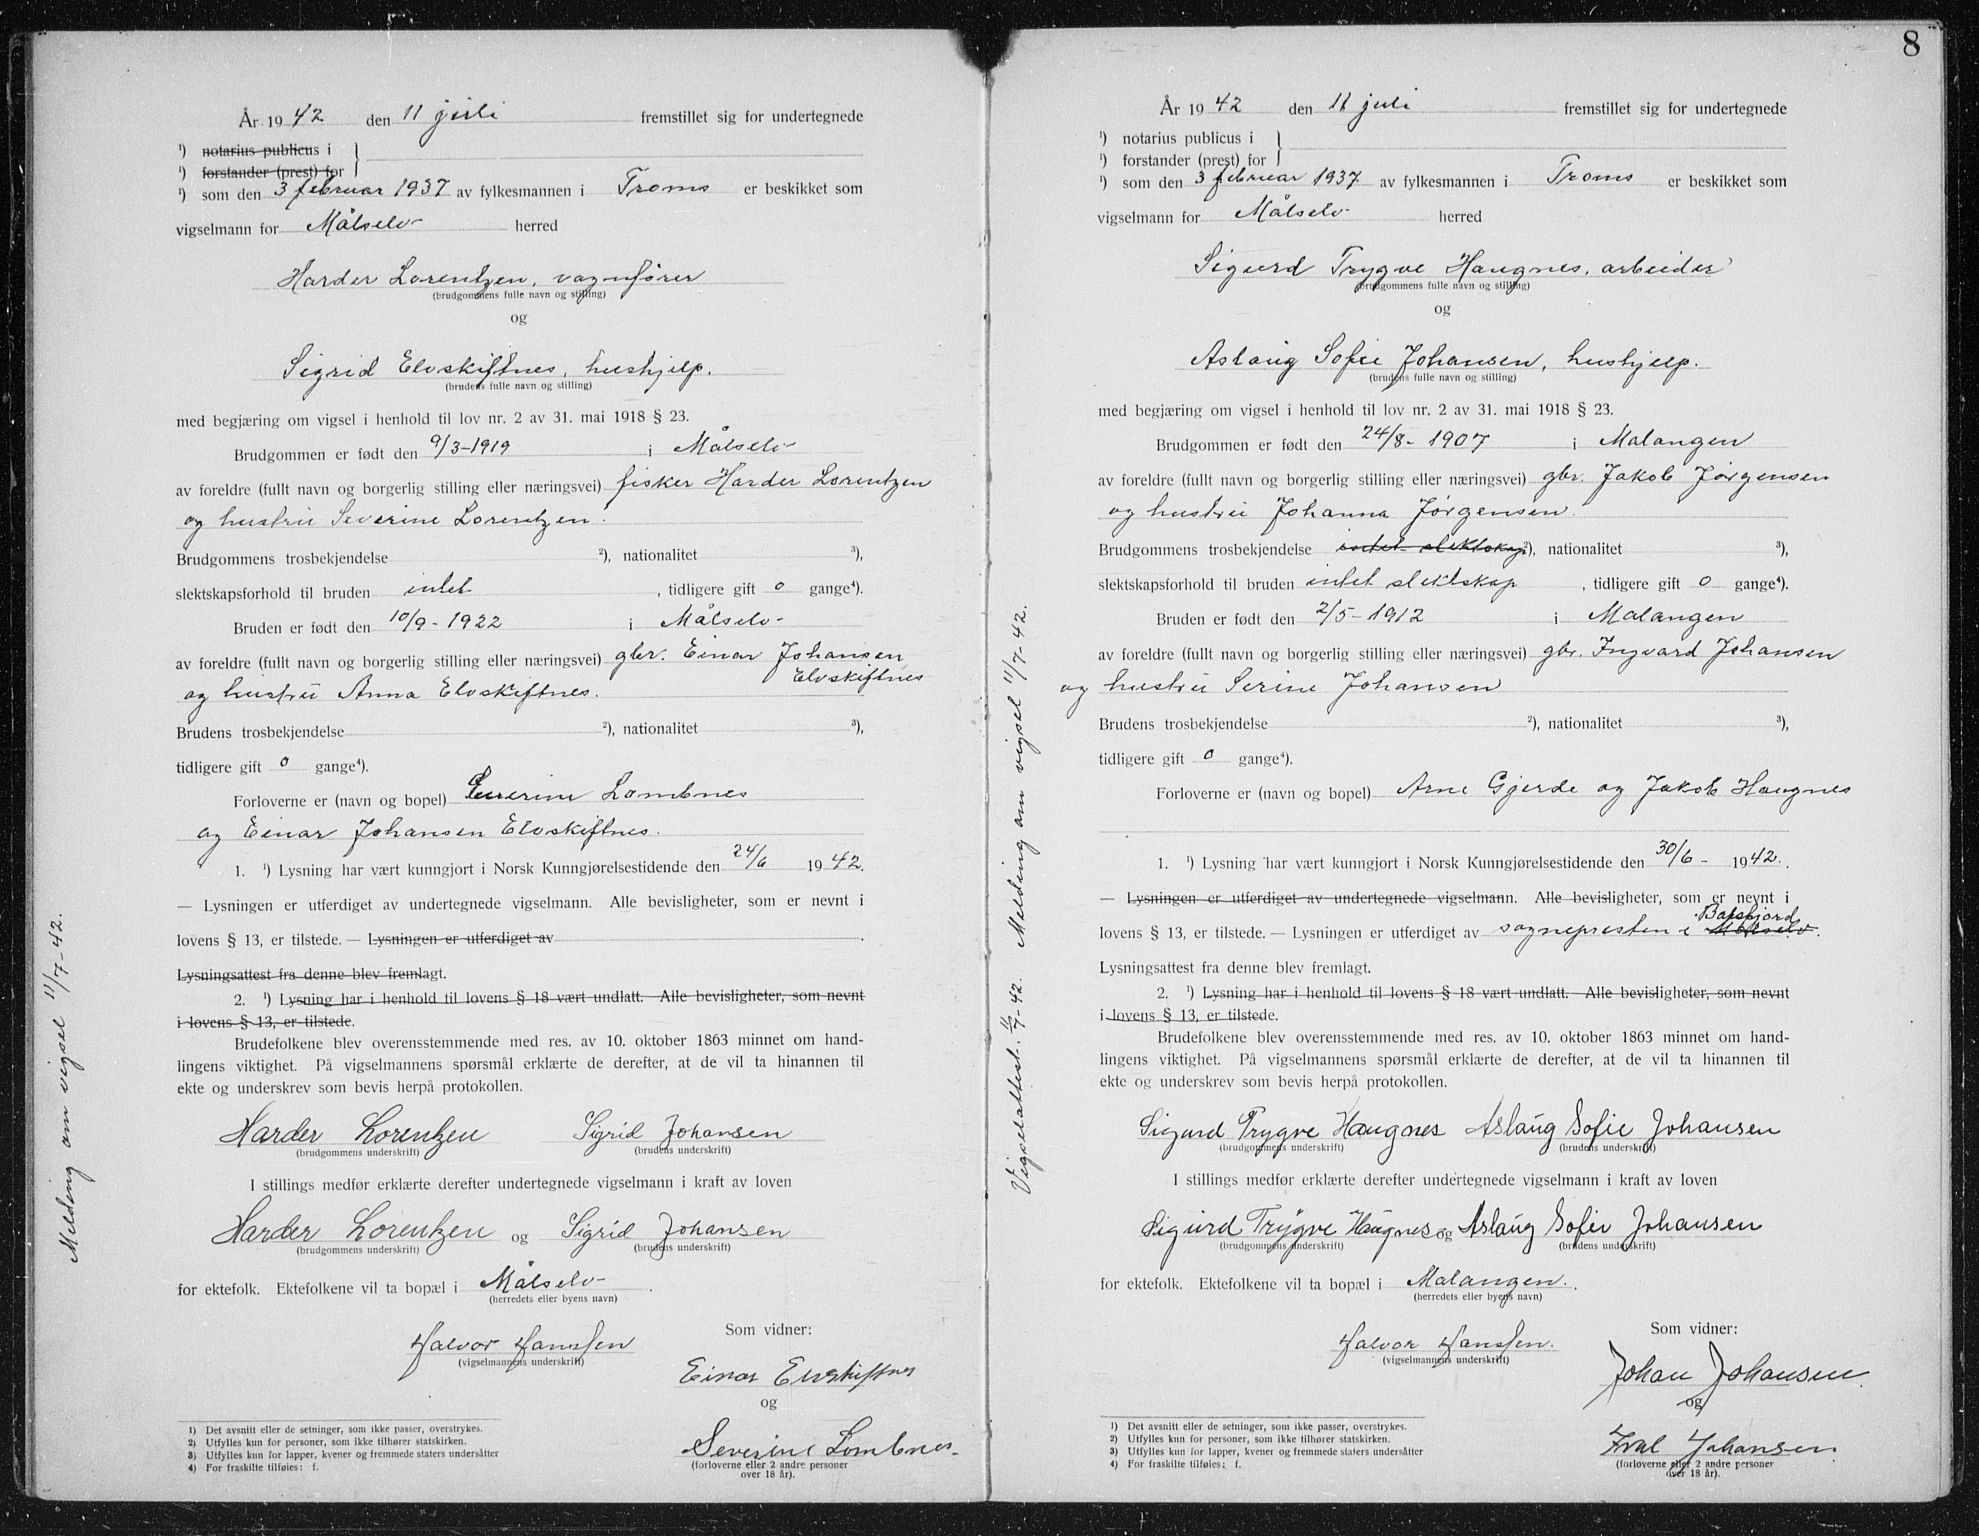 År 1942 den 11 juli fremstillet sig for undertegnede
¹) notarius publicus i
¹) forstander (prest) for
¹) som den 3 februar 1937 av fylkesmannen i Troms er beskikket som
vigselmann for Målselv herred
Harder Lorentzen, vognfører
(brudgommens fulle navn og stilling)
og
Sigrid Elvskiftnes, hushjelp.
(brudens fulle navn og stilling)
med begjæring om vigsel i henhold til lov nr. 2 av 31. mai 1918 § 23.
Brudgommen er født den 9/3-1919 i Målselv
av foreldre (fullt navn og borgerlig stilling eller næringsvei) fisker Harder Lorentzen
og hustru Severine Lorentzen.
Brudgommens trosbekjendelse ²), nationalitet ³),
slektskapsforhold til bruden intet, tidligere gift 0 gange⁴).
Bruden er født den 10/9-1922 i Målselv
av foreldre (fullt navn og borgerlig stilling eller næringsvei) gbr. Einar Johansen
Elvskiftnes
og hustru Anna Elvskiftnes.
Brudens trosbekjendelse ²), nationalitet ³),
tidligere gift 0 gange⁴).
Forloverne er (navn og bopel) Severine Lombnes
og Einar Johansen Elvskiftnes.
1. ¹) Lysning har vært kunngjort i Norsk Kunngjørelsestidende den 24/6 1942.
— Lysningen er utferdiget av undertegnede vigselmann. Alle bevisligheter, som er nevnt i
lovens § 13, er tilstede. — Lysningen er utferdiget av .
Lysningsattest fra denne blev fremlagt.
2. ¹) Lysning har i henhold til lovens § 18 vært undlatt. Alle bevisligheter, som nevnt
i lovens § 13, er tilstede.
Brudefolkene blev overensstemmende med res. av 10. oktober 1863 minnet om hand-
lingens viktighet. På vigselmannens spørsmål erklærte de derefter, at de vil ta hinannen til
ekte og underskrev som bevis herpå protokollen.
Harder Lorentzen Sigrid Johansen
(brudgommens underskrift) (brudens underskrift)
I stillings medfør erklærte derefter undertegnede vigselmann i kraft av loven
Harder Lorentzen og Sigrid Johansen
(brudgommens underskrift) (brudens underskrift)
for ektefolk. Ektefolkene vil ta bopæl i Målselv.
(herredets eller byens navn)
Som vidner:
Halvor Hanssen
(vigselmannens underskrift)
Einar Elvskiftnes
og
Severine Lombnes.
(forloverne eller 2 andre personer
over 18 år).
1) Det avsnitt eller de setninger, som ikke passer, overstrykes.
2) Utfylles kun for personer, som ikke tilhører statskirken.
3) Utfylles kun for lapper, kvener og fremmede staters undersåtter
4) For fraskilte tilføies: f.
Melding om vigsel 11/7-42.
8
År 1942 den 11 juli fremstillet sig for undertegnede
¹) notarius publicus i
¹) forstander (prest) for
¹) som den 3 februar 1937 av fylkesmannen i Troms er beskikket som
vigselmann for Målselv herred
Sigurd Trygve Haugnes, arbeider
(brudgommens fulle navn og stilling)
og
Aslaug Sofie Johansen, hushjelp.
(brudens fulle navn og stilling)
med begjæring om vigsel i henhold til lov nr. 2 av 31. mai 1918 § 23.
Brudgommen er født den 24/8-1907 i Malangen
av foreldre (fullt navn og borgerlig stilling eller næringsvei) gbr. Jakob Jørgensen
og hustru Johanna Jørgensen.
Brudgommens trosbekjendelse intet slektskap ²), nationalitet ³),
slektskapsforhold til bruden intet slektskap, tidligere gift 0 gange⁴).
Bruden er født den 2/5-1912 i Malangen
av foreldre (fullt navn og borgerlig stilling eller næringsvei) gbr. Ingvard Johansen
og hustru Serine Johansen
Brudens trosbekjendelse ²), nationalitet ³),
tidligere gift 0 gange⁴).
Forloverne er (navn og bopel) Arne Gjerde og Jakob Haugnes
1. ¹) Lysning har vært kunngjort i Norsk Kunngjørelsestidende den 30/6- 1942.
— Lysningen er utferdiget av undertegnede vigselmann. Alle bevisligheter, som er nevnt i
Balsfjord
lovens § 13, er tilstede. — Lysningen er utferdiget av sognepresten i Målselv.
Lysningsattest fra denne blev fremlagt.
2. ¹) Lysning har i henhold til lovens § 18 vært undlatt. Alle bevisligheter, som nevnt
i lovens § 13, er tilstede.
Brudefolkene blev overensstemmende med res. av 10. oktober 1863 minnet om hand-
lingens viktighet. På vigselmannens spørsmål erklærte de derefter, at de vil ta hinannen til
ekte og underskrev som bevis herpå protokollen.
Sigurd Trygve Haugnes Aslaug Sofie Johansen
(brudgommens underskrift) (brudens underskrift)
I stillings medfør erklærte derefter undertegnede vigselmann i kraft av loven
Sigurd Trygve Haugnes og Aslaug Sofie Johansen
(brudgommens underskrift) (brudens underskrift)
for ektefolk. Ektefolkene vil ta bopæl i Malangen.
(herredets eller byens navn)
Som vidner:
Halvor Hanssen.
(vigselmannens underskrift)
Johan Johansen.
og
Johansen
(forloverne eller 2 andre personer
over 18 år).
1) Det avsnitt eller de setninger, som ikke passer, overstrykes.
2) Utfylles kun for personer, som ikke tilhører statskirken.
3) Utfylles kun for lapper, kvener og fremmede staters undersåtter
4) For fraskilte tilføies: f.
Vigselattest. 7-42. Melding om vigsel 11/7-42.